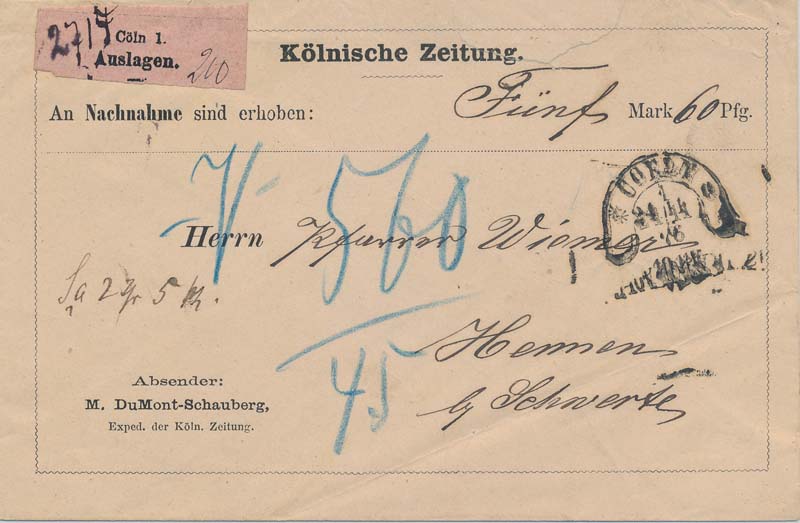 2714
Cöln 1.
Auslagen.
200
Kölnische Zeitung.
An Nachnahme sind erhoben:
Fünf Mark 60 Pfg.
V 560
45
COELN
1
24 11
76
Herrn Pfarrer
Sa 2 gr 5
Hennen
by Schwerte
Absender:
M. DuMont-Schauberg,
Exped. der Köln. Zeitung.